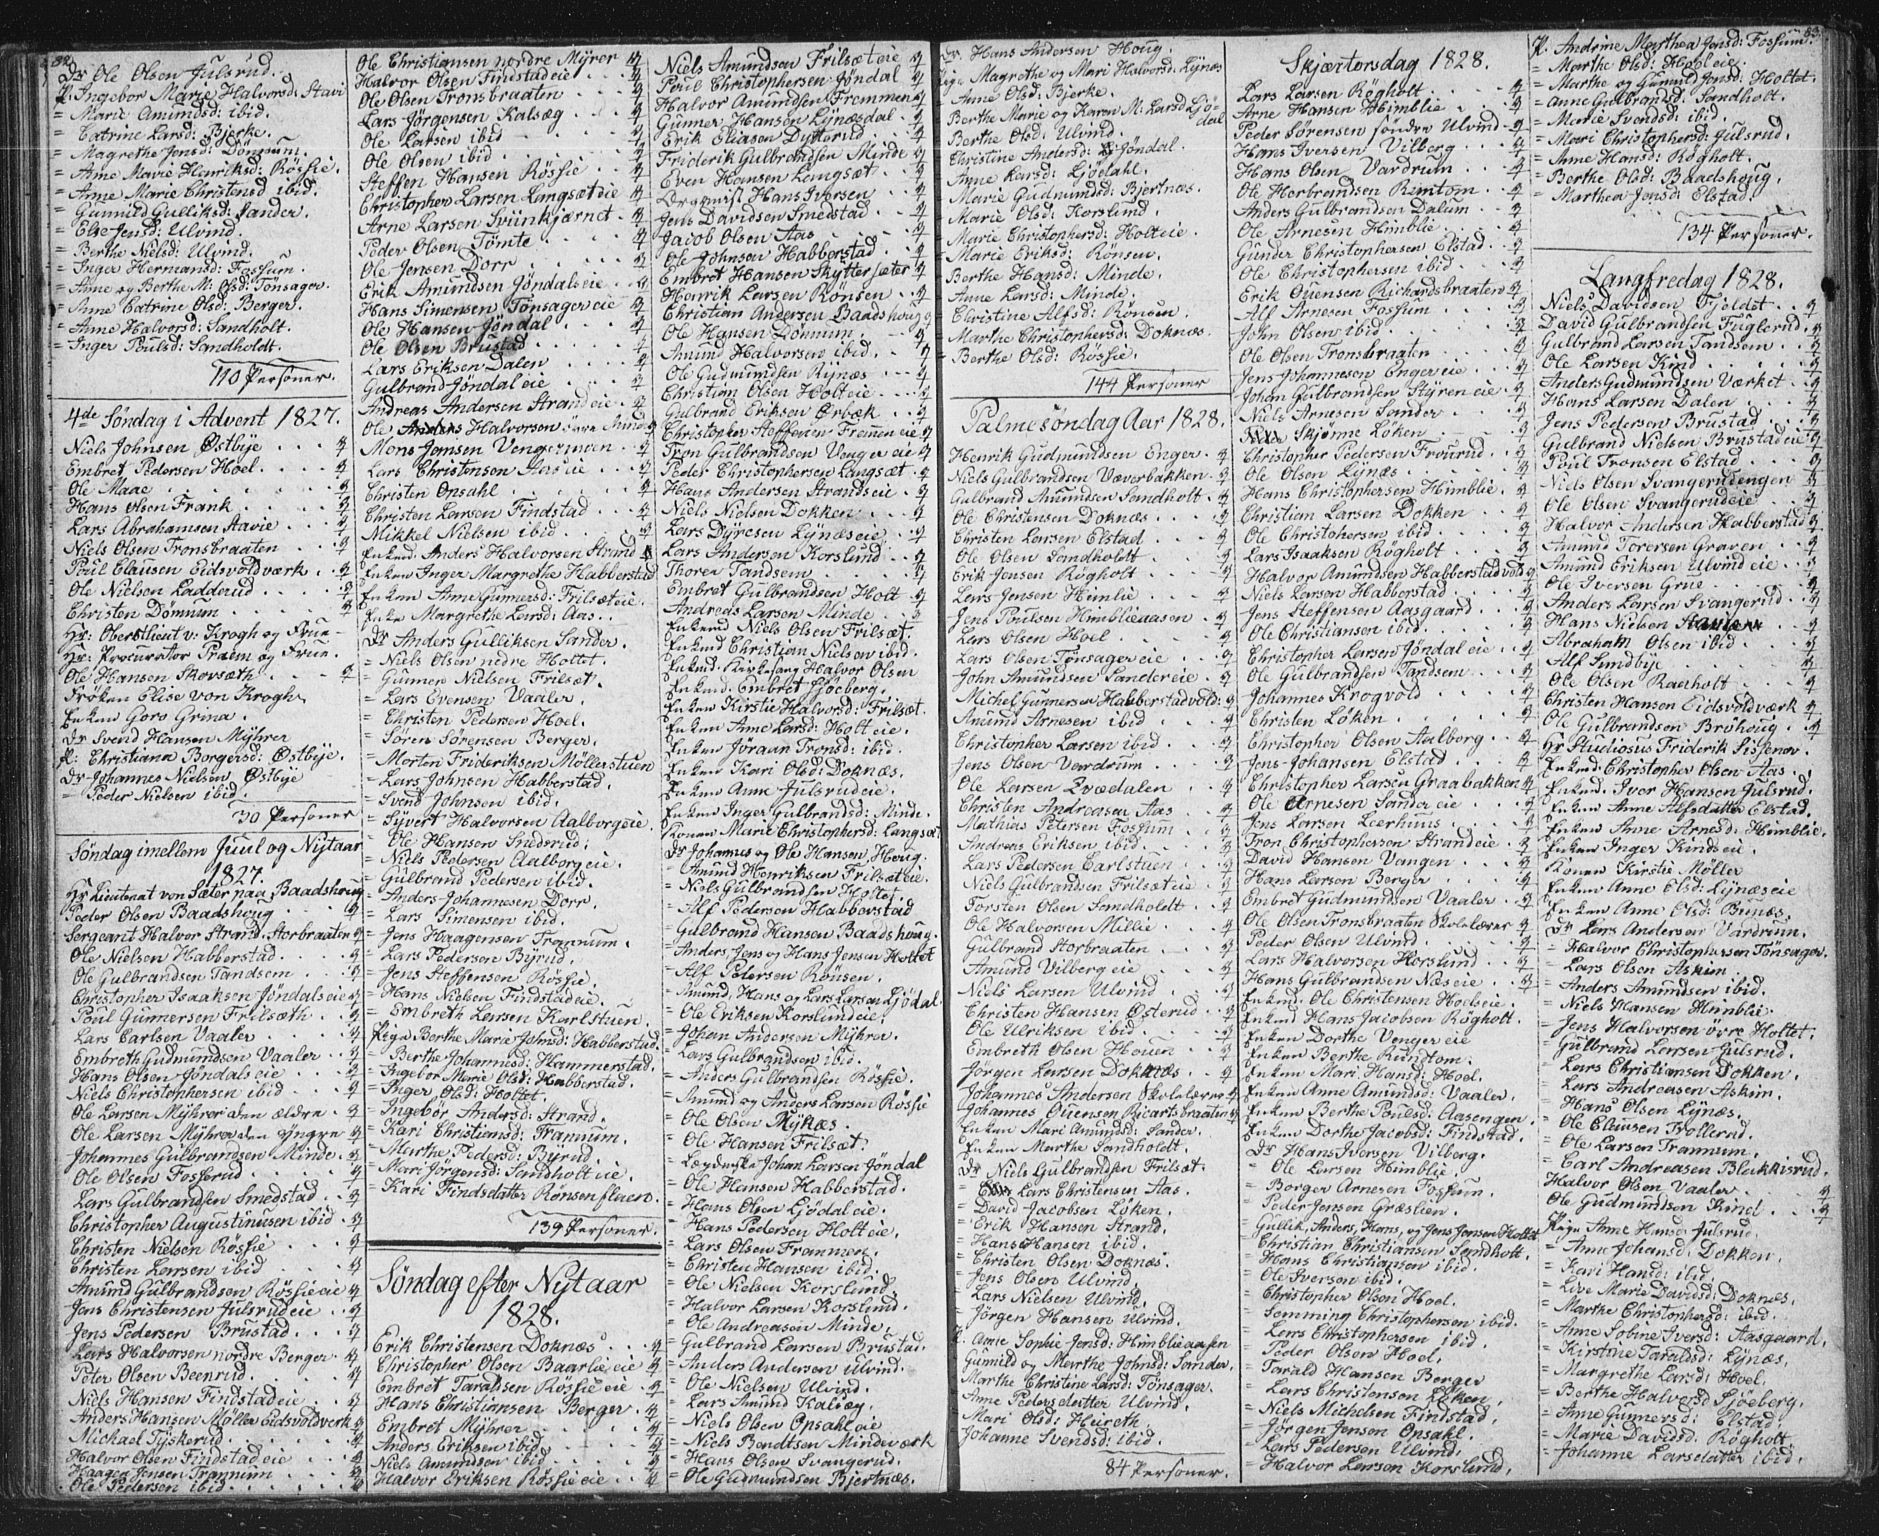 82.
Dr Ole Olsen Julsrud.
P. Ingebor Marie Halvorsd: Stavi
= Marie Amundsd: ibid.
= Catrine Larsd: Bjerke.
= Magrethe Jensd: Dønnum.
= Anne Marie Henriksd: Røisie.
= Anne Marie Christensd ibid.
= Gunnild Gulliksd: Sander.
= Else Jensd: Ulvind.
= Berthe Nielsd: Ulvind.
= Inger Hermansd: Fossum.
= Anne og Berthe M: Olsd: Tønsager.
= Anne Catrine Olsd: Berger.
= Anne Halvorsd: Sandholt.
= Inger Poulsd: Sandholdt.
110 Personer.
4de Søndag i Advent 1827.
Niels Johnsen Østbye
Embret Pedersen Hoel
Ole Maae
Hans Olsen Frank
Lars Abrahamsen Stavie
Niels Olsen Tronsbraaten
Poul Clausen Eidsvoldværk
Ole Nielsen Ladderud
Christen Dønnum
Hr: Oberstlieut v: Krogh og Frue
Hr: Procurator Praem og Frue
Ole Hansen Skovsæth
Frøken Elise von Krogh
Enken Goro Grina.
Dr Svend Hansen Myhrer
P. Christiana Borgersd: Østbye.
Dr Johannes Nielsen Østbye
= Peder Nielsen ibid.
30 Personer
Søndag imellem Juul og Nytaar
1827.
Hr Lieutenat von Sæter paa Baadshoug
Peder Olsen Baadshoug
Sergeant Halvor Strand Storbraaten
Ole Nielsen Habberstad
Ole Gulbrandsen Tandsem
Christopher Isaaksen Jøndalseie
Poul Gunnersen Frilsæth
Lars Carlsen Vaaler
Embreth Gudmundsen Vaaler
Hans Olsen Jøndalseie
Niels Christophersen ibid
Ole Larsen Myhrer den ældre
Ole Larsen Myhrer den yngre
Johannes Gulbrandsen Minde
Ole Olsen Fosserud
Lars Gulbrandsen Smedstad
Christopher Augustinusen ibid
Christen Nielsen Røssie
Christen Larsen ibid
Amund Gulbrandsen Røssieeie
Jens Christensen Julsrudeie
Jens Pedersen Brustad
Lars Halvorsen nordre Berger
Peter Olsen Beenrud
Niels Hansen Findstadeie
Anders Hansen Møller Eidsvoldverk
Michael Tyskerud
Halvor Olsen Findstadeie
Haagen Jensen Trannum
Ole Pedersen ibid
Ole Christiansen nordre Myrer
Halvor Olsen Findstadeie
Ole Olsen Tronsbraaten
Lars Jørgensen Kalsæg
Ole Larsen ibid
Ole Olsen ibid
Steffen Hansen Røssie
Christopher Larsen Langsæteie
Arne Larsen Sviinkjærnet
Peder Olsen Tømte
Ole Jensen Dorr
Erik Amundsen Jøndalseie
Hans Simensen Tønsagereie
Ole Hansen Jøndal
Ole Olsen Brustad
Lars Eriksen Dalen
Gulbrand Jøndaleie
Andreas Andersen Strandeie
Ole Halvorsen
Mons Jonsen Vengermoen
Lars Christenson
Christen Opsahl
Christen Larsen Findstad
Mikkel Nielsen ibid
Enkmd: Anders Halvorsen Strand
Enken Inger Margrethe Habberstad
Enken Anne Gunnersd: Frilsæteie.
Enken Margrethe Larsd: Aas.
Dr Anders Gulliksen Sander.
= Niels Olsen nedre Holtet.
= Gunner Nielsen Frilsæt.
= Lars Evensen Vaaler.
= Christen Pedersen Hoel.
= Søren Sørensen Berger.
= Morten Frideriksen Møllerstuen
= Lars Johnsen Habberstad.
= Svend Johnsen ibid.
= Syvert Halvorsen Aalborgeie.
= Ole Hansen Smedsrud.
= Niels Pedersen Aalborgeie.
= Gulbrand Pedersen ibid.
= Anders Johannesen Dorr.
= Lars Simensen ibid.
= Jens Haagensen Trannum.
= Lars Pedersen Byrud.
= Jens Steffensen Røssie.
= Hans Nielsen Findstadeie.
= Embreth Larsen Karlstuen.
Pige Berthe Marie Johnsd: Habberstad.
= Berthe Johannesd: Hammerstad.
= Ingebor Marie Olsd: Habberstad.
= Inger Olsd: Holtet.
= Ingebor Andersd: Strand.
= Kari Christiansd: Trannum.
= Marthe Pedersd: Byrud.
= Mari Jørgensd: Sandholteie.
= Kari Findsdatter Rønsenflaen.
139 Personer.
Søndag efter Nytaar
1828.
Erik Christensen Doknæs
Christopher Olsen Baarlieeie
Embret Taraldsen Røssieeie
Hans Christiansen Berger
Embret Myhrer
Anders Eriksen ibid
Niels Amundsen ibid
Halvor Eriksen Røssieeie
Niels Amundsen Frilsæteie
Poul Christophersen Jøndal
Halvor Amundsen Fremmen
Gunner Hansen Lynæsdal
Erik Eliasen Dytterud
Friderik Gulbrandsen Minde
Even Hansen Langsæt
Hans Iversen
Jens Davidsen Smedstad
Jacob Olsen Aas
Ole Johnsen Habberstad
Embret Hansen Skyttersæter
Henrik Larsen Rønsen
Christian Andersen Baadshoug
Ole Hansen Dønnum
Amund Halvorsen ibid.
Ole Gudmundsen Rynæs
Christian Olsen Holteie
Gulbrand Eriksen Ørbæk
Christopher Steffensen Fremeneie
Tron Gulbrandsen Vengereie
Peder Christophersen Langsæt
Hans Andersen Strandseie
Niels Nielsen Dokken
Lars Dyresen Lynæseie
Lars Andersen Korslund
Thorer Tandsem
Embret Gulbrandsen Holt
Andreas Larsen Minde
Enkemd Niels Olsen Frilsæt.
Enkmd Christian Nielsen ibid.
Enkmd. Kirkesang. Halvor Olsen
Enkmd: Embret Sjøeberg.
Enken Kirstie Halvorsd: Frilsæt.
Enken Anne Larsd: Holteie.
Enken Jøraan Tronsd: ibid.
Enken Kari Olsd: Doknæs.
Enken Anne Julsrudeie.
Enken Inger Gulbrandsd: Minde.
Konen Marie Christophersd: Langsæt
Dr Johannes og Ole Hansen Houg.
= Amund Henriksen Frilsæteie.
= Niels Gulbrandsen Holtet
= Alf Pedersen Habberstad
= Gulbrand Hansen Baadshoug.
= Anders, Jens og Hans Jensen Holtet
= Alf Pedersen Rønsen.
= Amund, Hans og Lars Larsen Ljødal
= Ole Eriksen Korslundeie
= Johan Andersen Myhrer
= Lars Gulbrandsen ibid.
= Anders Gulbrandsen Røssie.
= Amund og Anders Larsen Røssie
= Ole Olsen Mykæs.
= Ole Hansen Frilsæt.
= Johan Larsen Jøndal
= Ole Hansen Habberstad
= Hans Olsen Ljødaleie.
= Hans Pedersen Holteie.
= Lars Olsen Frammen.
= Christen Hansen ibid.
= Ole Nielsen Korslund.
= Halvor Larsen Korslund.
= Ole Andreasen Minde.
= Gulbrand Larsen Brustad.
= Anders Andersen Ulvind.
= Ole Nielsen Ulvind.
= Lars Amund Kalsæg.
= Niels Olsen Opsahleie
= Niels Bendtsen Mindeværk
= Hans Olsen Svangerud.
= Ole Gudmundsen Bjertnæs.
83.
Dr Hans Andersen Houg.
Pige Magrethe og Mari Halvorsd: Lynæs
Anne Olsd: Bjerke.
Berthe Marie og Karen M: Larsd Ljødal
Berthe Olsd: Ulvind.
Christine Andersd: Jøndal.
Anne Larsd: Ljødahl.
Marie Gudmundsd: Bjertnæs.
Marie Olsd: Korslund.
Marie Christophersd: Holteie.
Marie Eriksd: Rønsen.
Berthe Hansd: Minde.
Anne Larsd: Minde.
Christine Alfsd: Rønsen.
Marthe Christophersd: Doknæs.
= Berthe Olsd: Røssie.
144 Personer
Palmesøndag Aar 1828.
Henrik Gudmundsen Enger
Niels Gulbrandsen Væverbakken
Gulbrand Amundsen Sandholt
Ole Christensen Doknæs
Christen Larsen Elstad
Ole Olsen Sandholdt
Erik Jensen Røgholt
Lars Jensen Himlie
Jens Poulsen Himblieaasen
Lars Olsen Hoel
Lars Olsen Tønsagereie
John Amundsen Sandereie
Michel Gunnersen Habberstadvold
Amund Arnesen ibid
Christopher Larsen ibid
Jens Olsen Vardrum
Ole Larsen Qvædalen
Christen Andreasen Aas
Mathias Petersen Fossum
Andreas Eriksen ibid
Lars Pedersen Carlstuen
Niels Gulbrandsen Frilsæteie
Torsten Olsen Sandholdt
Ole Halvorsen Millie
Gulbrand Storbraaten
Amund Vilbergeie
Niels Larsen Ulvind
Christen Hansen Østerud
Ole Ulriksen ibid
Embreth Olsen Houen
Jørgen Larsen Doknæs
Johannes Andersen Skolelærer
Johannes Ouensen Ricartsbraaten
Enken Mari Amundsd: Sander.
Enken Marthe Sandholdt.
Dr Niels Gulbrandsen Frilsæt.
= Lars Christensen Aas.
= David Jacobsen Løken.
= Erik Hansen Strand.
= Hans Hansen ibid.
= Christen Olsen Doknæs.
= Jens Olsen Ulvind.
= Lars Nielsen Ulvind.
= Jørgen Hansen Ulvind.
P. Anne Sophie Jensd: Himblieaasen
Gunild og Marthe Johnsd: Sander.
Marthe Christine Larsd: Tønsager.
Anne Pedersdatter Ulvind.
Mari Olsd: Heireth.
Johanne Svendsd: ibid.
84 Personer.
Skjærtorsdag 1828.
Lars Larsen Røgholt
Arne Hansen Himblie
Peder Sørensen søndre Ulvind
Hans Iversen Vilberg
Hans Olsen Vardrum
Ole Herbrandsen Remtom
Anders Gulbrandsen Dalum
Ole Arnesen Himblie
Gunder Christophersen Elstad
Ole Christophersen ibid
Erik Ouensen Richardsbraaten
Alf Arnesen Fossum
John Olsen ibid
Ole Olsen Tronsbraaten
Jens Johannesen Engereie
Johan Gulbrandsen Styreneie
Niels Arnesen Sander
Skjønne Løken
Christopher Pedersen Frourud
Ole Olsen Lynæs
Hans Christophersen Himblie
Christian Larsen Dokken
Ole Christophersen ibid
Lars Isaaksen Røgholt
Halvor Amundsen Habberstadvold
Niels Larsen Habberstad
Jens Steffensen Aasgaard
Ole Christiansen ibid
Christopher Larsen Jøndaleie
Ole Gulbrandsen Tandsem
Johannes Krogvold
Christen Løken
Christopher Olsen Aalborg
Jens Johansen Elstad
Christopher Larsen Graabakken
Ole Arnesen Sandereie
Jens Larsen Leerhuus
Tron Christophersen Strandeie
David Hansen Vangen
Hans Larsen Berger
Embret Gudmundsen Vaaler
Ole Olsen Tronsbraaten Skolelærer
Peder Olsen Ulvind
Lars Halvorsen Korslund
Hans Gulbrandsen Næseie
Enkmd: Ole Christensen Hoelseie
Enkmd Hans Jacobsen Røgholt.
Enken Dorthe Vengereie
Enken Berthe Rundtom.
Enken Mari Hansd: Hoel.
Enken Anne Amundsd: Vaaler.
Enken Berthe Poulsd: Aasengen.
Enken Dorthe Jacobsd: Findstad.
Dr Hans Iversen Vilberg.
= Ole Larsen Himblie.
= Borger Arnesen Fossum.
= Peder Jensen Græslien.
Gullik, Anders, Hans, og Jens Jensen Holtet
= Christian Christiansen Sandholt.
= Hans Christiansen ibid.
= Ole Iversen ibid.
= Christopher Olsen Hoel.
= Semming Christophersen ibid.
= Lars Christophersen ibid.
= Peder Olsen Hoel.
= Tarald Hansen Berger
= Lars Christensen Løken.
= Niels Michelsen Findstad.
= Jørgen Jensen Opsahl.
= Lars Pedersen Ulvind.
= Halvor Larsen Korslund.
P. Andrine Marthea Jensd: Fossum.
= Marthe Olsd: Hoeleie.
= Marthe og Gunnild Jensd: Holtet.
= Anne Gulbrandsd: Sandholt.
= Marie Svendsd: ibid.
= Mari Christophersd: Julsrud.
= Anne Hansd: Røgholt.
= Berthe Olsd: Baadshoug.
= Marthea Jensd: Elstad.
134 Personer.
Langfredag 1828.
Niels Davidsen Fjeldst
David Gulbrandsen Fuglerud
Gulbrand Larsen Tandsem
Ole Larsen Kind
Anders Gudmundsen Værket
Hans Larsen Dalen
Jens Pedersen Brustad
Gulbrand Nielsen Brustadeie
Poul Tronsen Elstad
Niels Olsen Svangerudengen
Ole Olsen Svangerudeie
Halvor Andersen Habberstad
Amund Torersen Graven
Amund Eriksen Ulvindeie
Ole Iversen Grue
Anders Larsen Svangerud
Hans Nielsen
Abraham Olsen ibid
Alf Sundbye
Ole Olsen Raaholt
Christen Hansen Eidsvoldværk
Ole Gulbrandsen Brøhoug
Hr Studiosus Friderik Sissener.
Enkmd: Christopher Olsen Aas.
Enkmd. Iver Hansen Julsrud.
Enken Anne Alfsdatter Elstad.
Enken Anne Arnesd: Himblie.
Enken Inger Kindeie.
Konen Kirstie Møller
Enken Anne Olsd: Lynæseie
Enken Anne Olsd: Bunæs.
Dr Lars Andersen Vardrum.
= Halvor Christophersen Tønsager.
= Lars Olsen Askim.
= Anders Amundsen ibid.
= Niels Hansen Himblie
= Jens Halvorsen øvre Holtet.
= Gulbrand Larsen Julsrud.
= Lars Christiansen Dokken.
= Lars Andreasen Askim.
= Hans Olsen Lynæs.
= Ole Clausen Bollerud.
= Ole Larsen Trannum.
= Carl Andreasen Blekkisrud.
Halvor Olsen Vaaler
Ole Gudmundsen Kind
Pige Anne Hansd Julsrud.
= Anne Johansd: Dokken.
= Kari Hansd: ibid.
= Live Marie Davidsd: Doknæs.
= Marthe Christophersd: ibid.
= Anne Sobine Iversd: Aasgaard.
= Kirstine Taraldsd: Lynæs.
= Margrethe Larsd: Hoel.
= Berthe Halvorsd Sjøeberg.
= Anne Gunnersd: Elstad.
= Marie Davidsd: Røgholt
= Johanne Larsdatter ibid.